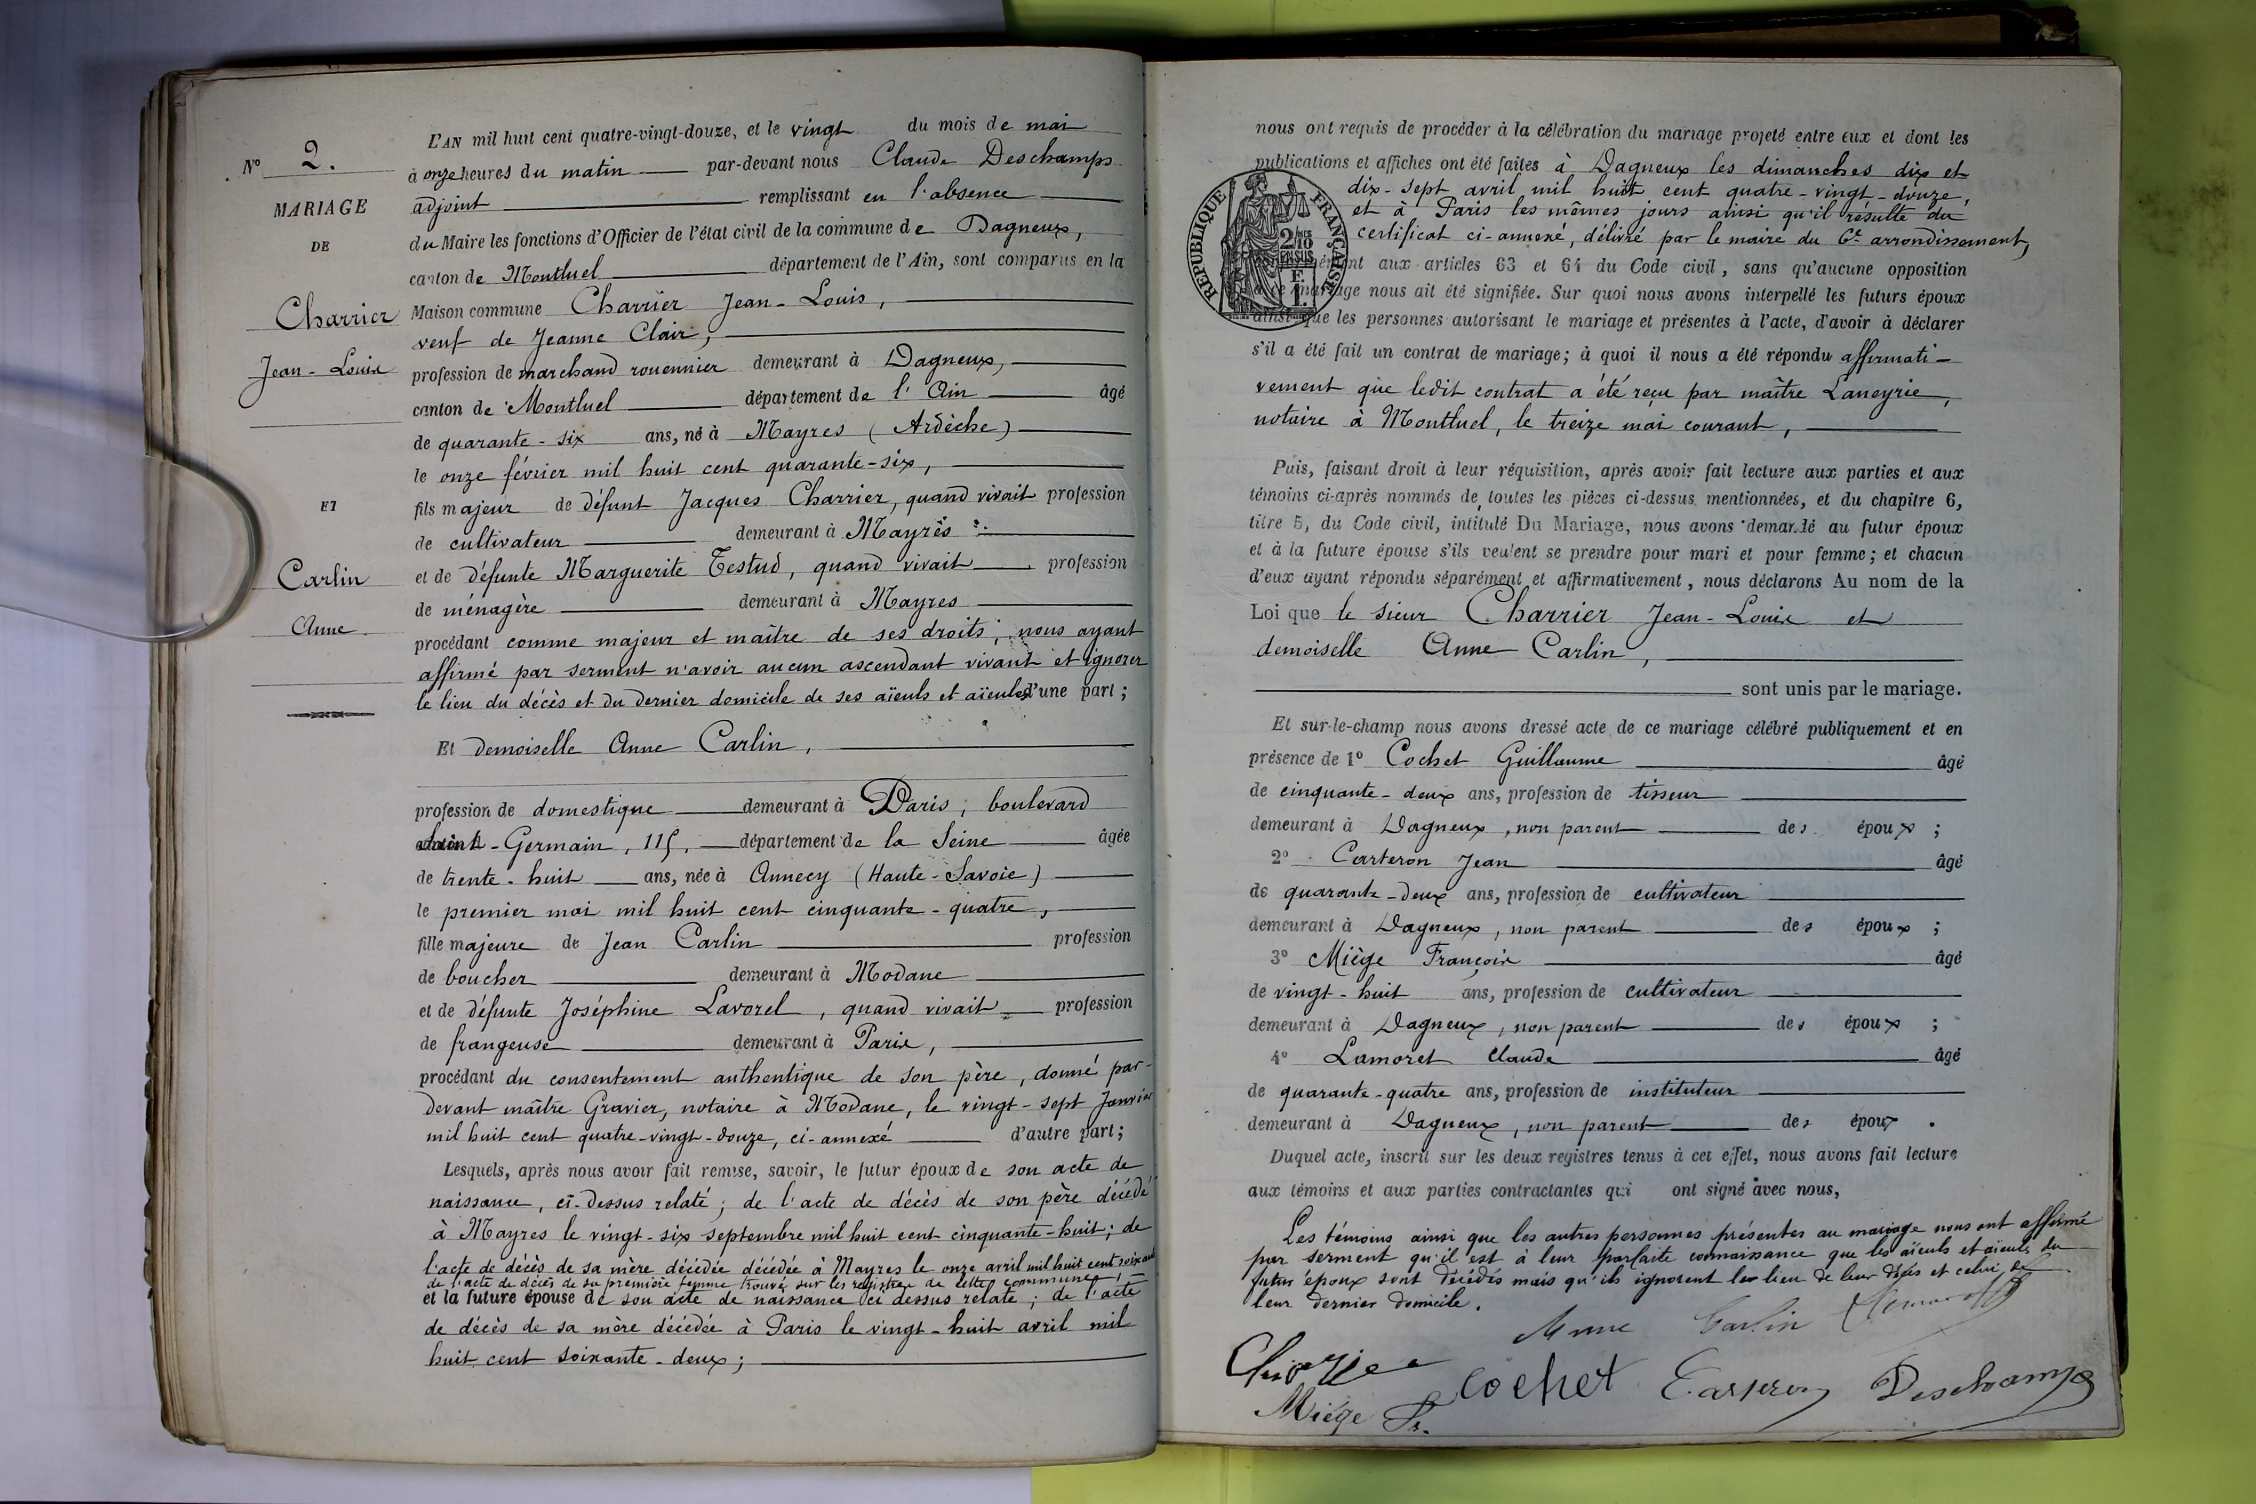 N° 2.
MARIAGE
DE
Charrier
Jean-Louis
ET
Carlin
Anne
L'AN mil huit cent quatre-vingt-douze, et le vingt du mois de mai
à onze heures du matin par-devant nous Claude Deschamps
adjoint remplissant en l'absence
du Maire les fonctions d'Officier de l'état civil de la commune de Dagneux,
canton de Montluel département de l'Ain, sont comparus en la
Maison commune Charrier Jean-Louis,
veuf de Jeanne Clair,
profession de marchand rouennier demeurant à Dagneux,
canton de Montluel département de l'Ain âgé
de quarante-six ans, né à Mayres (Ardèche)
le onze février mil huit cent quarante-six,
fils majeur de défunt Jacques Charrier, quand vivait profession
de cultivateur demeurant à Mayres
et de défunte Marguerite Testud, quand vivait profession
de ménagère demeurant à Mayres
procédant comme majeur et maître de ses droits, nous ayant
affirmé par serment n'avoir aucun ascendant vivant et ignorer
le lieu du décès et du dernier domicile de ses aïeuls et aïeules d'une part;
Et demoiselle Anne Carlin,
profession de domestique demeurant à Paris, boulevard
Saint-Germain, 115, département de la Seine âgée
de trente-huit ans, née à Annecy (Haute-Savoie)
le premier mai mil huit cent cinquante-quatre,
fille majeure de Jean Carlin profession
de boucher demeurant à Modane
et de défunte Joséphine Lavorel, quand vivait profession
de frangeuse demeurant à Paris,
procédant du consentement authentique de son père, donné par-
devant maître Gravier, notaire à Modane, le vingt-sept Janvier
mil huit cent quatre-vingt-douze, ci-annexé d'autre part;
Lesquels, après nous avoir fait remise, savoir, le futur époux de son acte de
naissance, ci-dessus relaté; de l'acte de décès de son père décédé
à Mayres le vingt-six septembre mil huit cent cinquante-huit; de
l'acte de décès de sa mère décédée décédée à Mayres le onze avril mil huit cent soixante
de l'acte de décès de sa première femme trouvé sur les registres de cette commune,
et la future épouse de son acte de naissance ci dessus relaté; de l'acte
de décès de sa mère décédée à Paris le vingt-huit avril mil
huit cent soixante-deux;
nous ont requis de procéder à la célébration du mariage projeté entre eux et dont les
publications et affiches ont été faites à Dagneux les dimanches dix et
dix-sept avril mil huit cent quatre-vingt-douze,
et à Paris les mêmes jours ainsi qu'il résulte du
certificat ci-annexé, délivré par le maire du 6e arrondissement,
RÉPUBLIQUE FRANÇAISE
2/10
EN SUS
1 F.
aux articles 63 et 64 du Code civil, sans qu'aucune opposition
à ce mariage nous ait été signifiée. Sur quoi nous avons interpellé les futurs époux
ainsi que les personnes autorisant le mariage et présentes à l'acte, d'avoir à déclarer
s'il a été fait un contrat de mariage; à quoi il nous a été répondu affirmati-
vement que ledit contrat a été reçu par maître Laneyrie,
notaire à Montluel, le treize mai courant,
Puis, faisant droit à leur réquisition, après avoir fait lecture aux parties et aux
témoins ci-après nommés de toutes les pièces ci-dessus mentionnées, et du chapitre 6,
titre 5, du Code civil, intitulé Du Mariage, nous avons demandé au futur époux
et à la future épouse s'ils veulent se prendre pour mari et pour femme; et chacun
d'eux ayant répondu séparément et affirmativement, nous déclarons Au nom de la
Loi que le sieur Charrier Jean-Louis et
demoiselle Anne Carlin,
sont unis par le mariage.
Et sur-le-champ nous avons dressé acte de ce mariage célébré publiquement et en
présence de 1° Cochet Guillaume âgé
de cinquante-deux ans, profession de tisseur
demeurant à Dagneux, non parent des époux;
2° Carteron Jean âgé
de quarante-deux ans, profession de cultivateur
demeurant à Dagneux, non parent des époux;
3° Miège François âgé
de vingt-huit ans, profession de cultivateur
demeurant à Dagneux, non parent des époux;
4° Lamoret Claude âgé
de quarante-quatre ans, profession de instituteur
demeurant à Dagneux, non parent des époux.
Duquel acte, inscrit sur les deux registres tenus à cet effet, nous avons fait lecture
aux témoins et aux parties contractantes qui ont signé avec nous,
Les témoins ainsi que les autres personnes présentes au mariage nous ont affirmé
par serment qu'il est à leur parfaite connaissance que les aïeuls et aïeules du
futur époux sont décédés mais qu'ils ignorent le lieu de leur décès et celui de
leur dernier domicile.
Anne Carlin
Charrier Cochet Carteron Deschamps
Miège Fs.